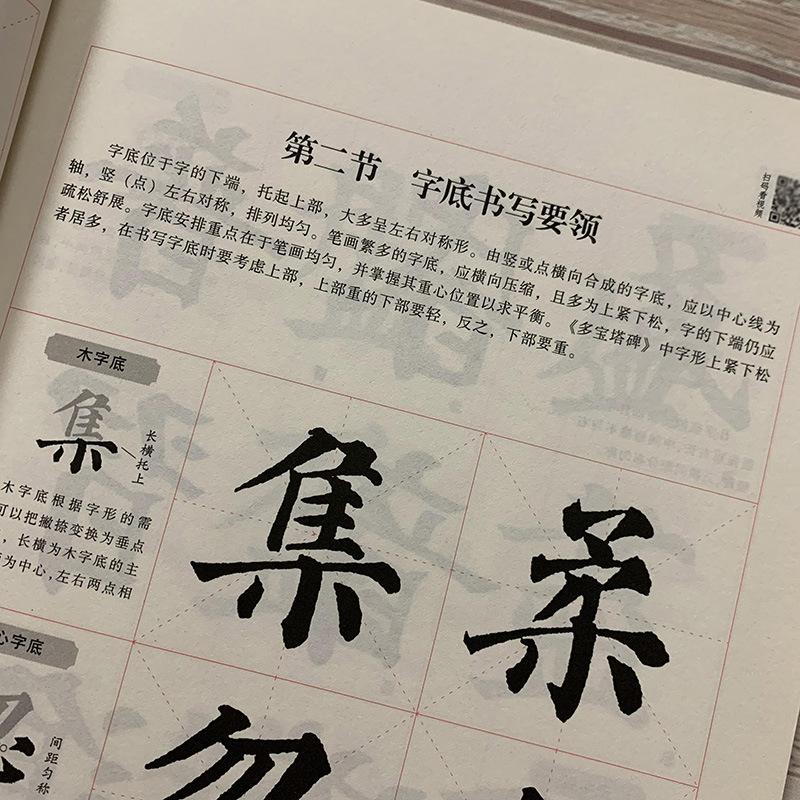 第二节 字底书写要领
扫码看视频
字底位于字的下端，托起上部，大多呈左右对称形。由竖或点横向合成的字底，应以中心线为
轴，竖（点）左右对称，排列均匀。笔画繁多的字底，应横向压缩，且多为上紧下松，字的下端仍应
疏松舒展。字底安排重点在于笔画均匀，并掌握其重心位置以求平衡。《多宝塔碑》中字形上紧下松
者居多，在书写字底时要考虑上部，上部重的下部要轻，反之，下部要重。
木字底
集
长横托上
木字底根据字形的需
可以把撇捺变换为垂点
，长横为木字底的主
为中心,左右两点相
集
柔
心字底
间距匀称